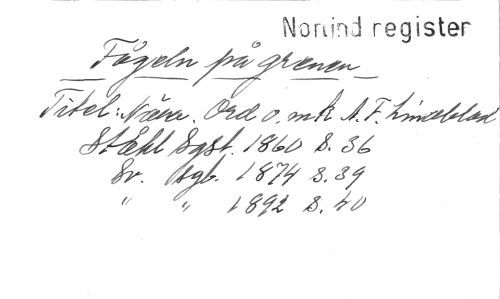 Nordind register
Fågeln på grenen
Titel: Näva. Ord o. mk A. F. Lindblad
Stæhl Sgst. 1860 S. 36
Sv. Sgb. 1874 S. 39
" " 1892 S. 40